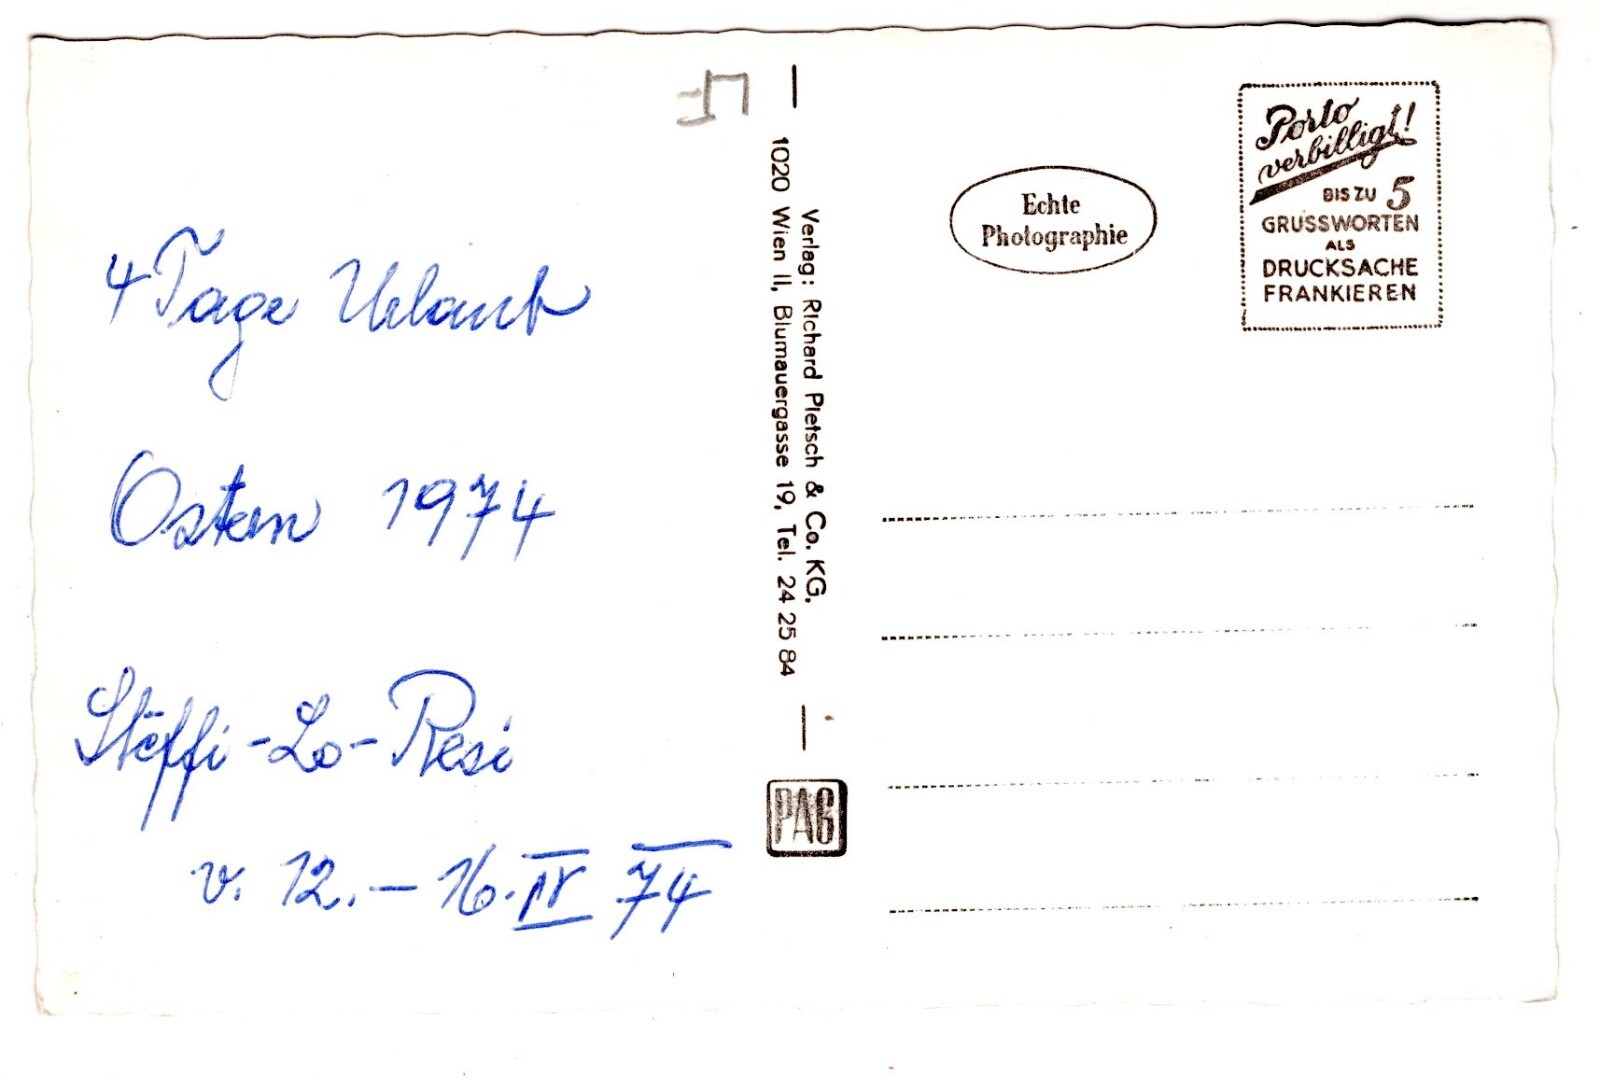 4 Tage Urlaub
Ostern 1974
Steffi-Lo-Resi
v. 12. – 16. IV 74
Verlag: Richard Pietsch & Co. KG,
1020 Wien II, Blumauergasse 19, Tel. 24 25 84
PAG
Echte
Photographie
Porto
verbilligt!
BIS ZU 5
GRUSSWORTEN
ALS
DRUCKSACHE
FRANKIEREN